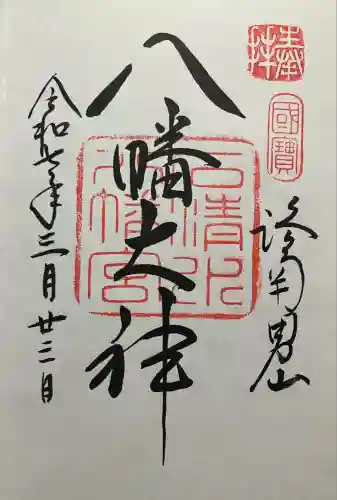 奉拝
國寶
洛南男山
八幡大神
石清水
八幡宮
令和七年三月廿三日